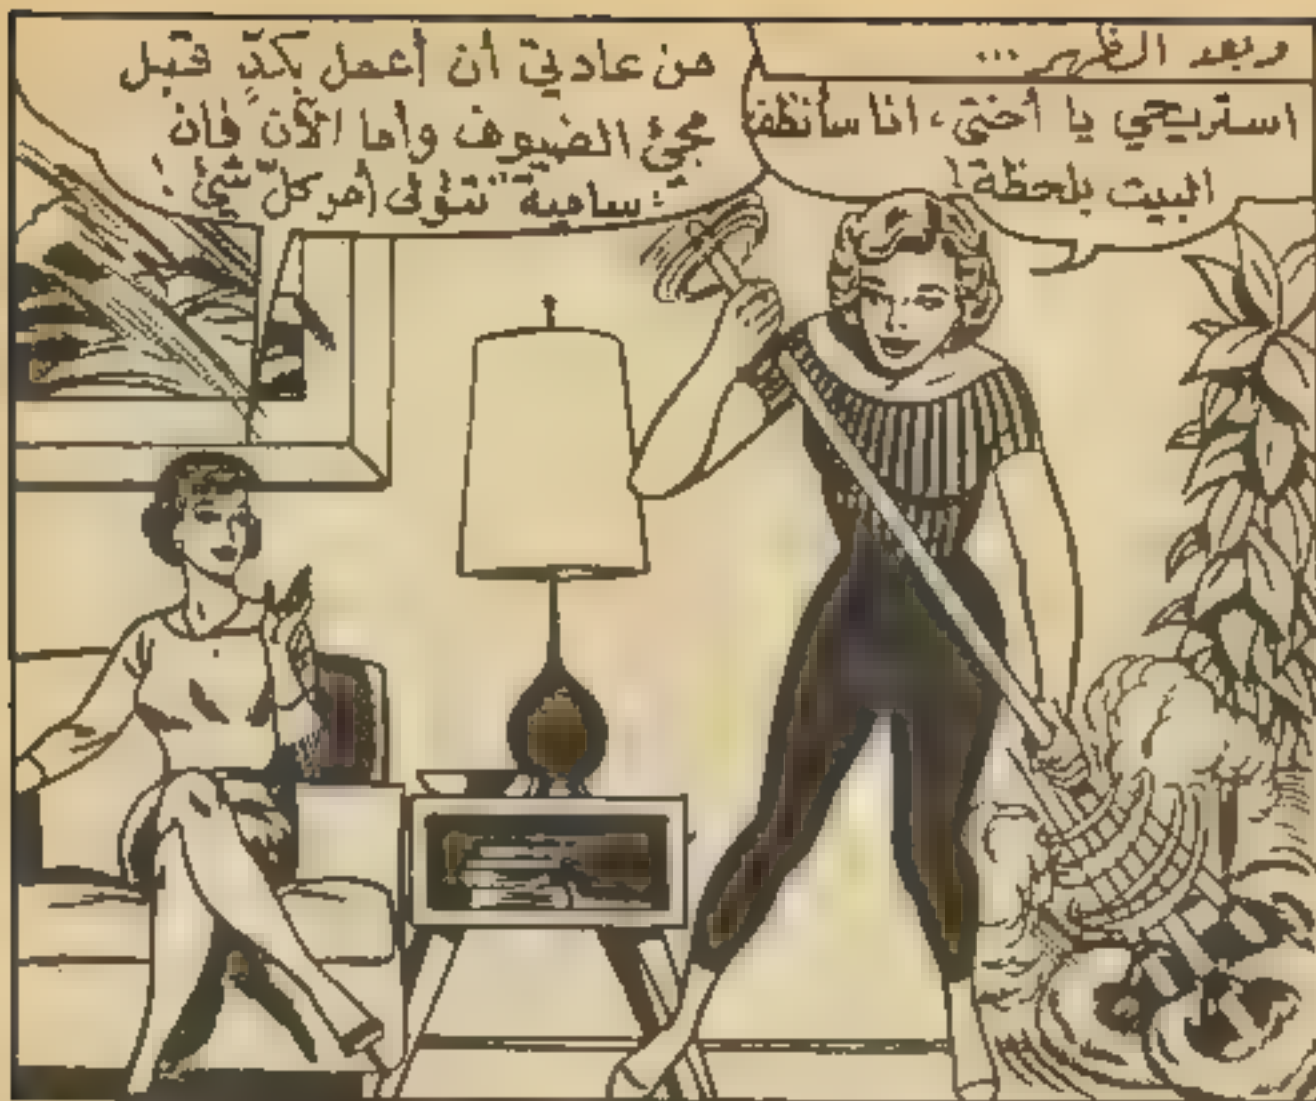 وبعد الظهر ...
استريحي يا أختي، انا سأنظف
البيت بلحظة!
من عادتي أن أعمل بكدٍّ قبل
مجئ الضيوف وأما الآن فان
"سامية" تتولى أمر كلّ شئ!